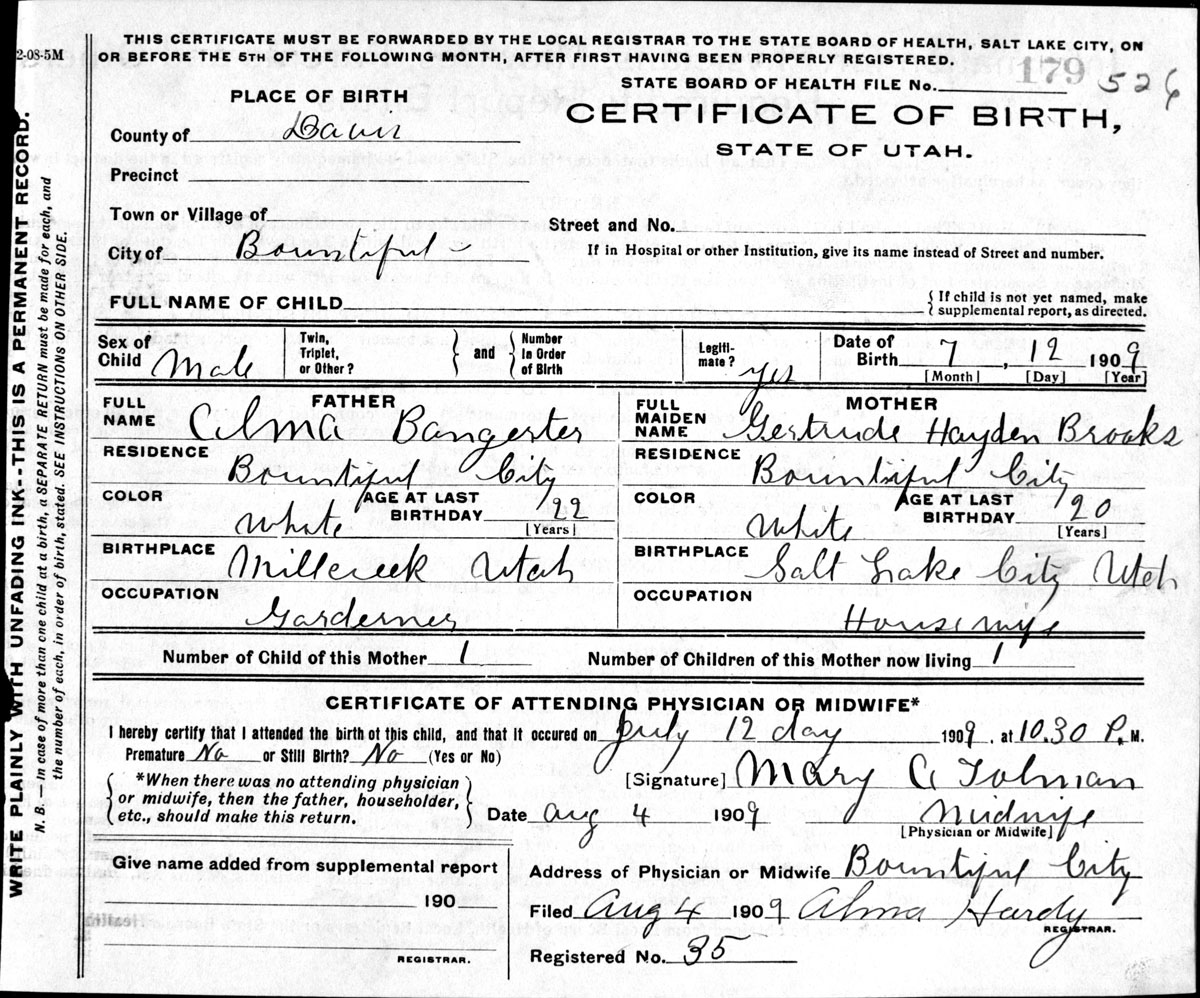 THIS CERTIFICATE MUST BE FORWARDED BY THE LOCAL REGISTRAR TO THE STATE BOARD OF HEALTH, SALT LAKE CITY, ON
OR BEFORE THE 5TH OF THE FOLLOWING MONTH, AFTER FIRST HAVING BEEN PROPERLY REGISTERED.
2-08-5M
179 526
STATE BOARD OF HEALTH FILE No.
CERTIFICATE OF BIRTH,
STATE OF UTAH.
PLACE OF BIRTH
County of Davis
Precinct
Town or Village of
City of Bountiful
Street and No.
If in Hospital or other Institution, give its name instead of Street and number.
FULL NAME OF CHILD
{ If child is not yet named, make
supplemental report, as directed.
Sex of Child Male
Twin, Triplet, or Other?
} and {
Number In Order of Birth
Legiti- mate? yes
Date of Birth 7, 12 1909
[Month] [Day] [Year]
FATHER
FULL NAME Alma Bangerter
RESIDENCE Bountiful City
COLOR White
AGE AT LAST BIRTHDAY 22
[Years]
BIRTHPLACE Millcreek Utah
OCCUPATION Garderner
MOTHER
FULL MAIDEN NAME Gertrude Hayden Brooks
RESIDENCE Bountiful City
COLOR White
AGE AT LAST BIRTHDAY 20
[Years]
BIRTHPLACE Salt Lake City Utah
OCCUPATION Housewife
Number of Child of this Mother 1
Number of Children of this Mother now living 1
CERTIFICATE OF ATTENDING PHYSICIAN OR MIDWIFE*
I hereby certify that I attended the birth of this child, and that it occured on July 12 day 1909, at 10.30 P. M.
Premature No or Still Birth? No (Yes or No)
{ *When there was no attending physician
or midwife, then the father, householder,
etc., should make this return. }
[Signature] Mary C Tolman
Date Aug 4 1909 Midwife
[Physician or Midwife]
Give name added from supplemental report
190
REGISTRAR.
Address of Physician or Midwife Bountiful City
Filed Aug 4 1909 Alma Hardy
REGISTRAR.
Registered No. 35
WRITE PLAINLY WITH UNFADING INK--THIS IS A PERMANENT RECORD.
N. B.—In case of more than one child at a birth, a SEPARATE RETURN must be made for each, and
the number of each, in order of birth, stated. SEE INSTRUCTIONS ON OTHER SIDE.